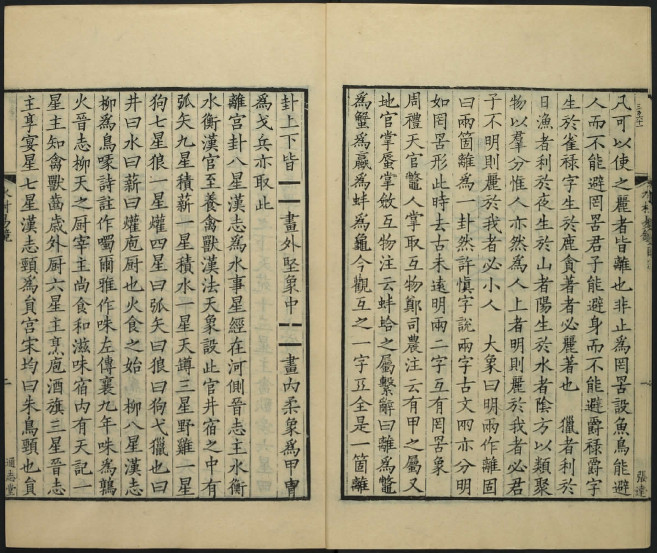 凡可以使之麗者皆離也非止爲罔罟設魚鳥能避
人而不能避罔罟君子能避身而不能避爵祿爵字
生於雀祿字生於鹿貪著者必麗著也　獵者利於
日漁者利於夜生於山者陽生於水者陰方以類聚
物以羣分惟人亦然爲人上者明則麗於我者必君
子不明則麗於我者必小人　大象曰明兩作離固
曰兩箇離爲一卦然許慎字說兩字古文罒亦分明
如罔罟形此時去古未遠明兩二字互有罔罟象
周禮天官鼈人掌取互物鄭司農注云有甲之屬又
地官掌蜃掌斂互物注云蚌蛤之屬繫辭曰離爲鼈
爲蟹爲蠃爲蚌爲龜今觀互之一字互全是一箇離
卦上下皆⚊畫外堅象中⚋畫內柔象爲甲冑
爲戈兵亦取此
離宮卦八星漢志爲水事星經在河側晉志主水衡
水衡漢官至養禽獸漢法天象設此官井宿之中有
弧矢九星積薪一星積水一星天罇三星野雞一星
狗七星狼一星爟四星曰弧矢曰狼曰狗弋獵也曰
井曰水曰薪曰爟庖厨也火食之始　柳八星漢志
柳爲鳥喙詩註作噣爾雅作咮左傳襄九年咮爲鶉
火晉志柳天之厨宰主尚食和滋味宿内有天記一
星主知禽獸齒歲外厨六星主烹庖酒旗三星晉志
主享宴星七星漢志頸爲負宮宋均曰朱鳥頸也負
通志堂
張達